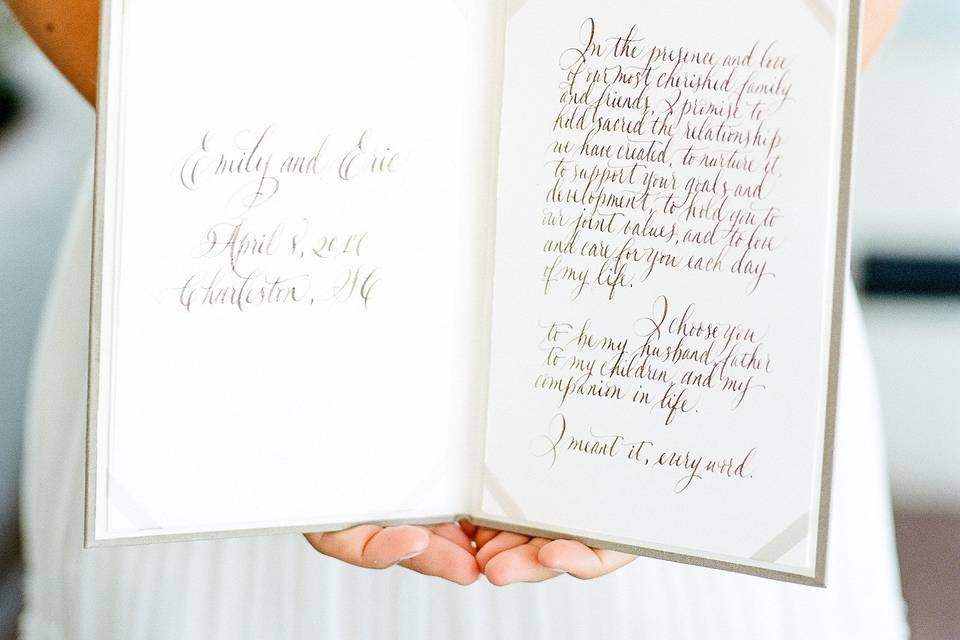 Emily and Eric
April 8, 2017
Charleston, SC
In the presence and love
of our most cherished family
and friends, I promise to
hold sacred the relationship
we have created, to nurture it,
to support your goals and
development, to hold you to
our joint values, and to love
and care for you each day
of my life.
I choose you
to be my husband, father
to my children, and my
companion in life.
I meant it, every word.